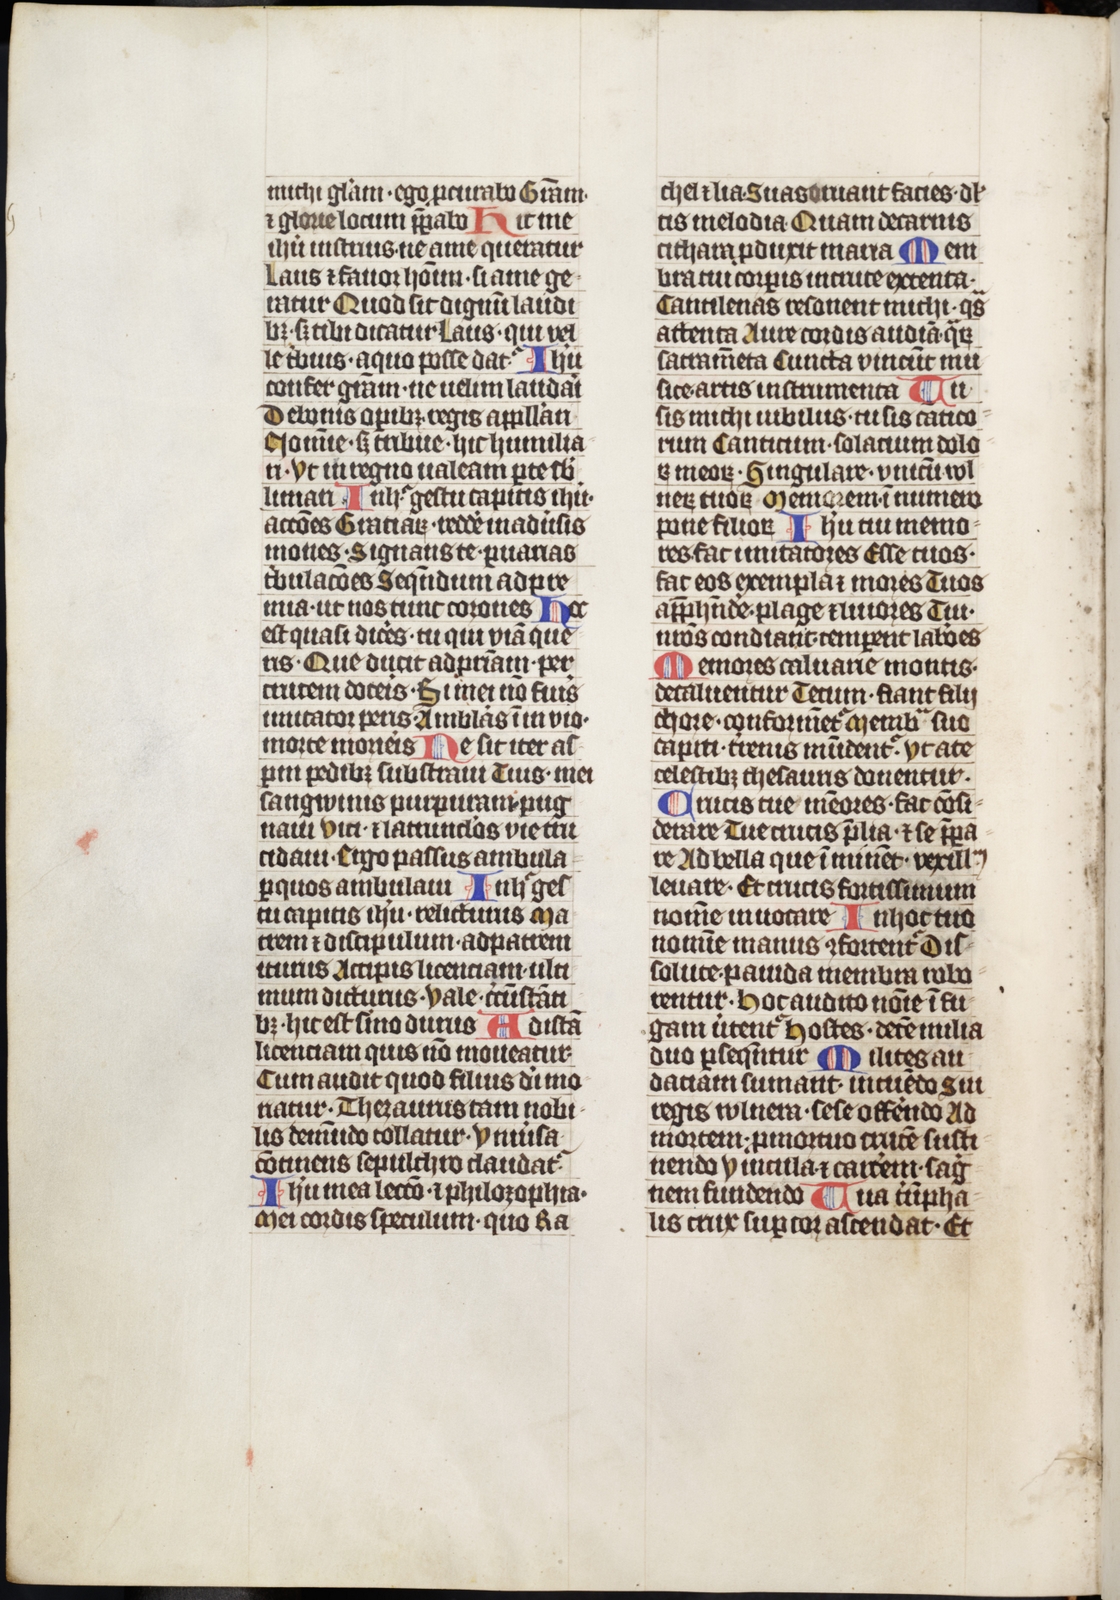 michi gl̄am · ego ꝓcurabo Gr̄am ·
⁊ glorie locum p̄parabo Hic me
ihū instruis · ne a me queratur
Laus ⁊ fauor hoīum · si a me ge
ratur Quod sit dignū laudi
bꝫ · sꝫ tibi dicatur Laus · qui vel
le tribuis · a quo posse datᷓ Ihū
confer gr̄am · ne uelim laudari
De bonis oꝑibꝫ regis appllari
Noīne · sꝫ tribue · hic humilia
ri · Vt in regno ualeam ꝑ te sb
limari In hͨ gestu capitis ihū ·
acc̄oes Graciaꝝ · recte in adūsis
mones · Signans te · ꝑ uarias
tribulac̄oes Sequendum ad pre
mia · ut nos tunc corones Hoc
est quasi dices · tu qui viā que
ris · Que ducit ad pr̄iam · per
crucem doceris · Si mei nō fuis
imitator peris · Amblās ī inuio ·
morte morieris Ne sit iter as
perū pedibꝫ substraui Tuis · mei
sangwinis purpuram · pug
naui Vici · ⁊ latrūclos vie tru
cidaui · Ergo passus ambula
ꝑ quos ambulaui In hͨ ges
tu capitis ihū · relicturus Ma
trem ⁊ discipulum · ad patrem
iturus Accipis licenciam · ulti
mum dicturus · Vale · circūstāti
bꝫ · hic est sino durus Ad istā
licenciam quis nō moueatur
Cum audit quod filius di mo
riatur · Thezaurus tam nobi
lis demūdo collatur · Vniūsa
cōtinens sepulchro claudatᷓ
Ihū mea lecc̄o · ⁊ philozophia ·
Mei cordis speculum · quo Ra
chel ⁊ lia · Suas ornant facies · dl
cis melodia · Quam decarnis
cithara ꝓduxit maria Mem
bra tui corꝑis in cruce extenta ·
Cantilenas resonent michi · qͣs
attenta Aure cordis audiā · qͣꝫ
sacram̄eta Cuncta vincūt mu
sice · artis instrumenta Tu
sis michi iubilus · tu sis cantico
rum Canticum · solacium dolo
ꝝ meoꝝ · Singulare · vnicū vol
neꝝ tuoꝝ Memorem · ī numero
pone filioꝝ Ihū tui memo
res fac imitatores Esse tuos ·
fac eos exempla ⁊ mores Tuos
app̄hnde · plage ⁊ liuores Tui ·
uiros condiant · temperent labōes
Memores caluarie montis ·
decaluentur Tecum · fiant filij
chore · conformetᷓ Membͣ suo
capiti · trenis mūdentᷓ · Vt a te
celestibꝫ thesauris donentur ·
Crucis tue mēores · fac cōsi
derare Tue crucis p̄lia · ⁊ se p̄pa
re Ad bella que īminēt · vexillū
leuare · Et crucis fortissimum
nomīe inuocare In hoc tuo
nomīe manus ꝯfortentᷓ Dis
solute · pauida membra robo
rentur · Hoc audito nōie ī fu
gam ūtentᷓ Hostes · decē milia
duo ꝑsequntur Milites au
daciam sumant · intuēdo Sui
regis vulnera · sese offendo Ad
mortem · ꝓ mortuo crucē susti
nendo Vincula ⁊ carcerem · sag
nem fundendo Tua triūpha
lis crux suꝑ cor ascendat · Et